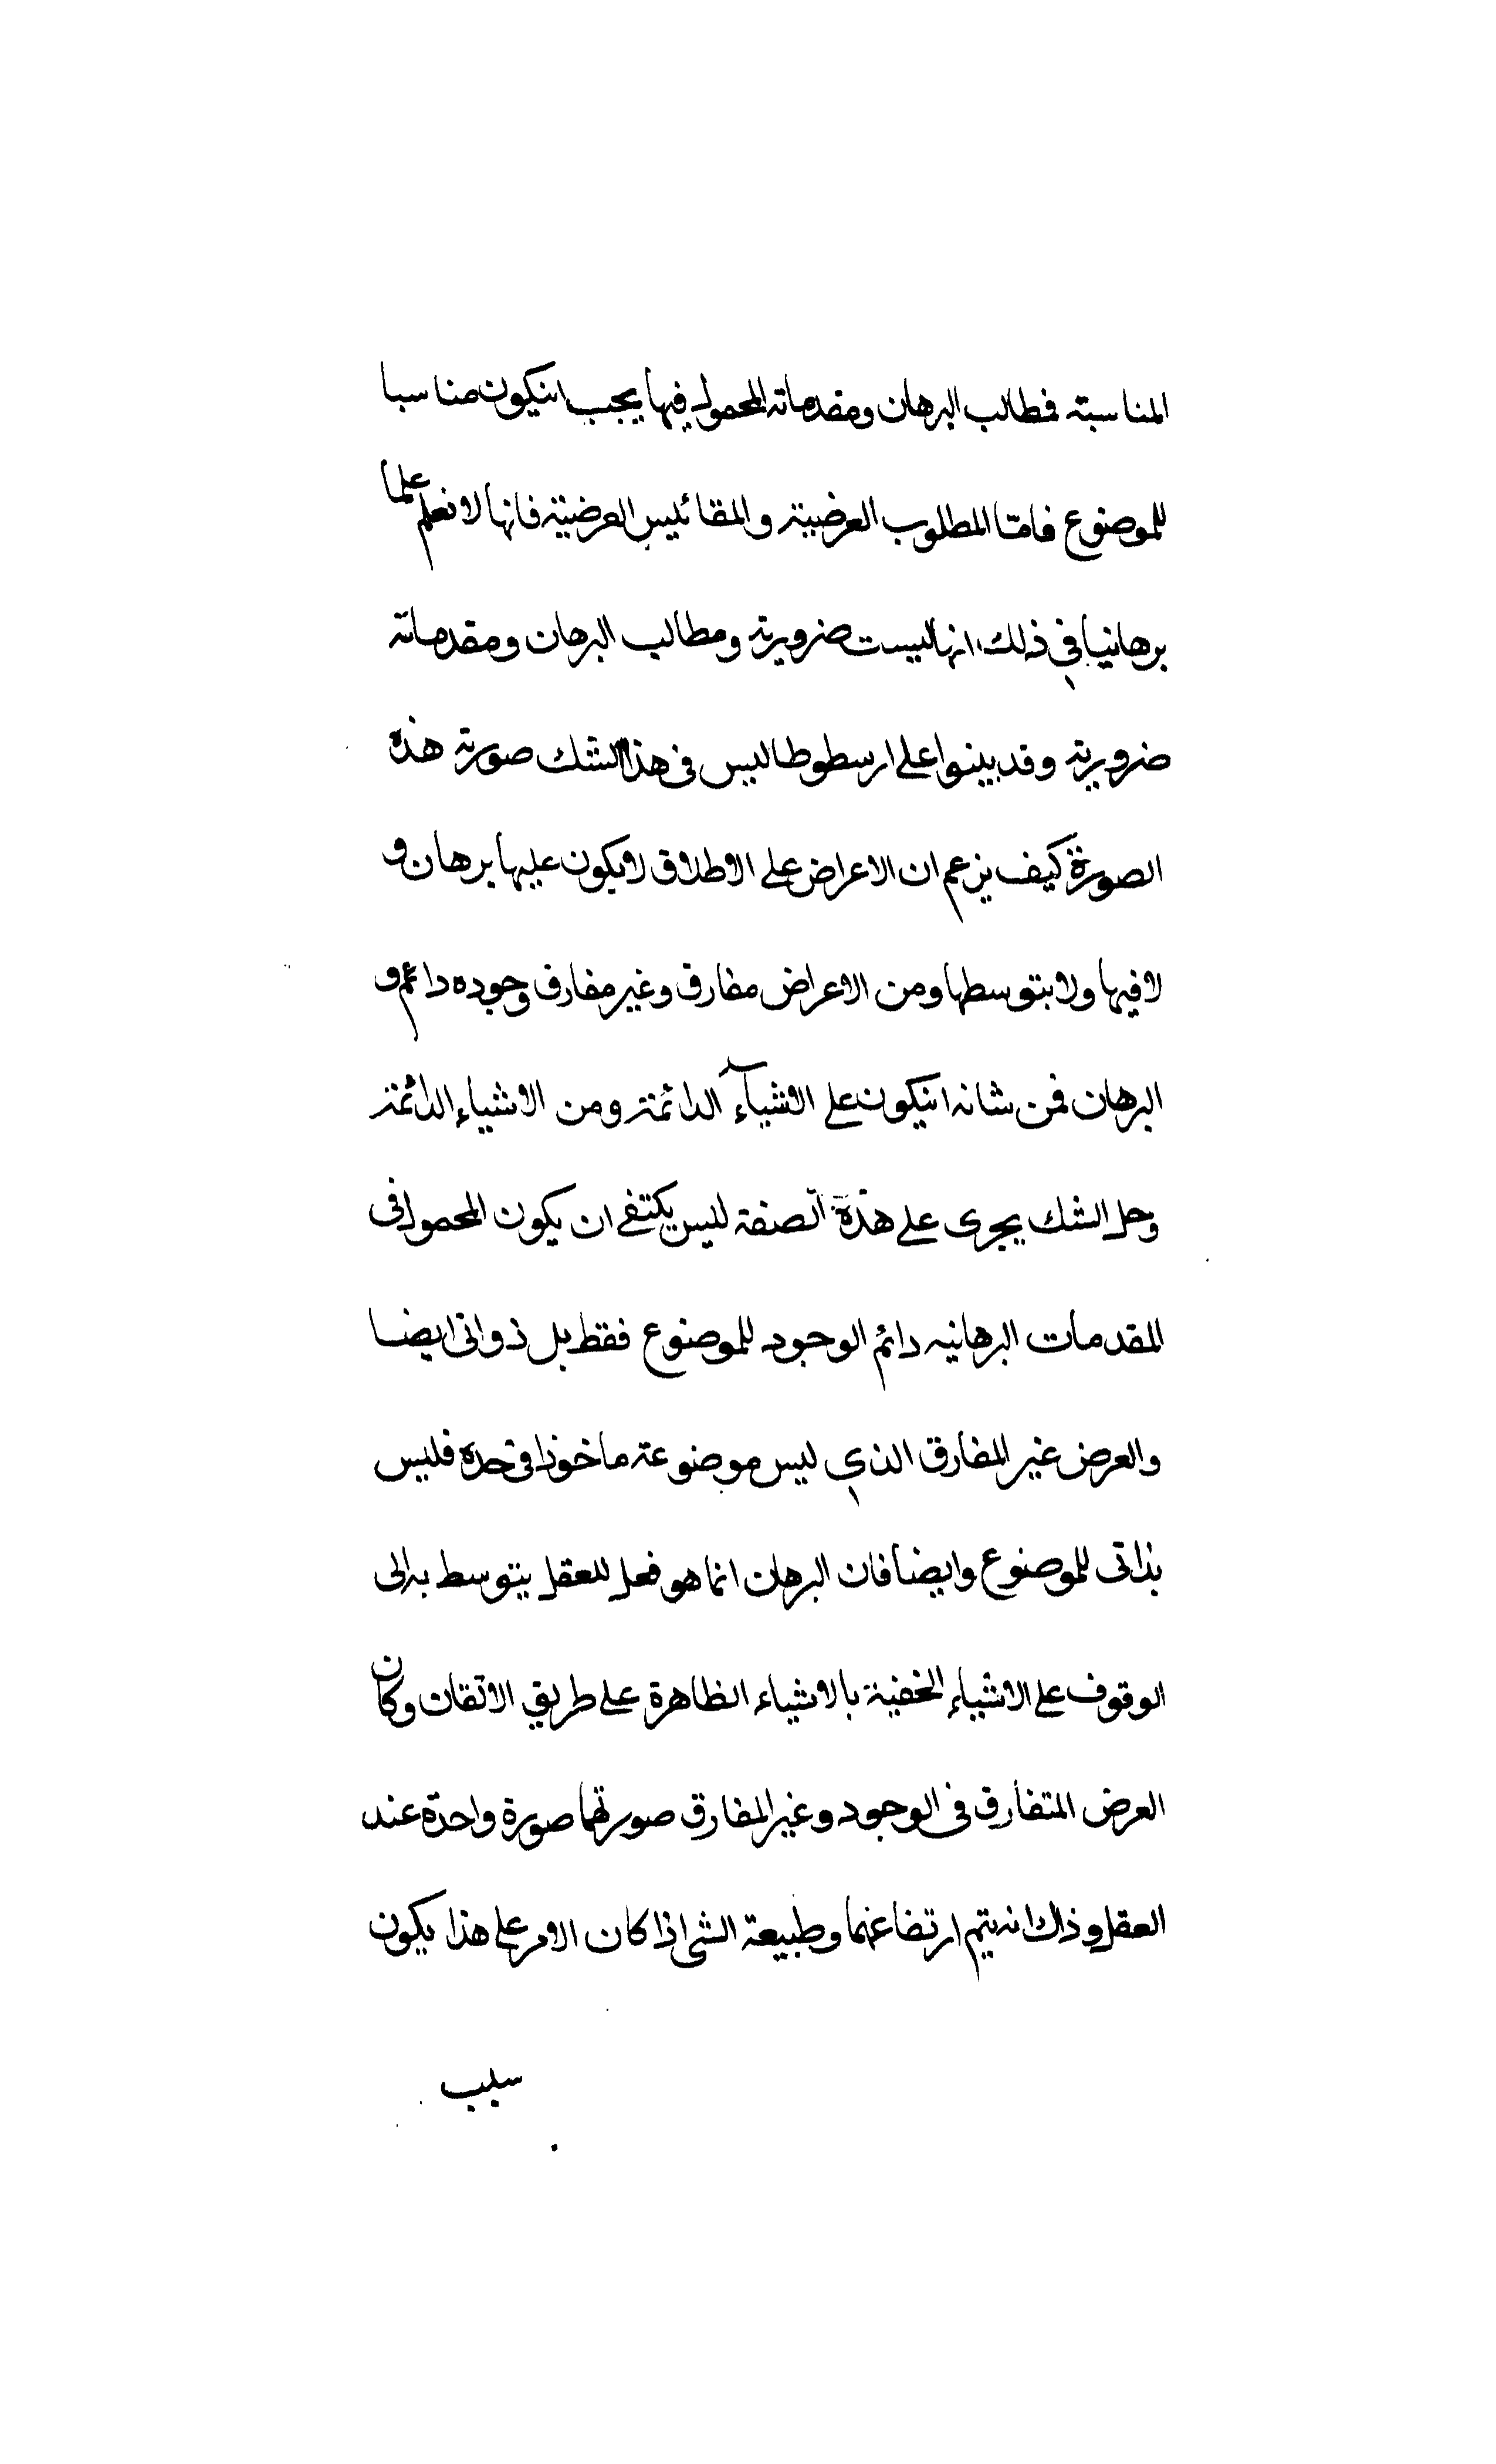 المناسبة فطالب البرهان ومقدماته المحمول فيها يجب انيكون مناسبا
للموضوع فامّا المطلوب العرضية والمقائيس العرضية فانها لا نعلم علما
برهانيا في ذلك انها ليست ضرورية ومطالب البرهان ومقدماته
ضرورية وقد بينوا على ارسطوطاليس فى هذا الشك صورته هذه
الصورة كيف يزعم ان الاعراض على الاطلاق لا يكون عليها برهان و
لا فيها ولا بتوسطها ومن الاعراض مفارق وغير مفارق وجوده دائم و
البرهان فمن شانه انيكون على الاشياء الدائمة ومن الاشياء الدائمة
وحل الشك يجرى على هذه الصفة ليس يكتفى ان يكون المحمول فى
المقدمات البرهانيه دائم الوجود للموضوع فقط بل ذواتى ايضا
والعرض غير المفارق الذي ليس موضوعة ماخوذا فى حده فليس
بذاتى للموضوع وايضا فان البرهان انما هو فعل للعقل يتوسط به الى
الوقوف على الاشياء الخفية بالاشياء الظاهرة على طريق الاتقان وكان
العرض المتفارق فى الوجود وغير المفارق صورتهما صورة واحدة عند
العقل وذاك انه يتم ارتفاعهما وطبيعة الشى اذا كان الامر على هذا يكون
سبب